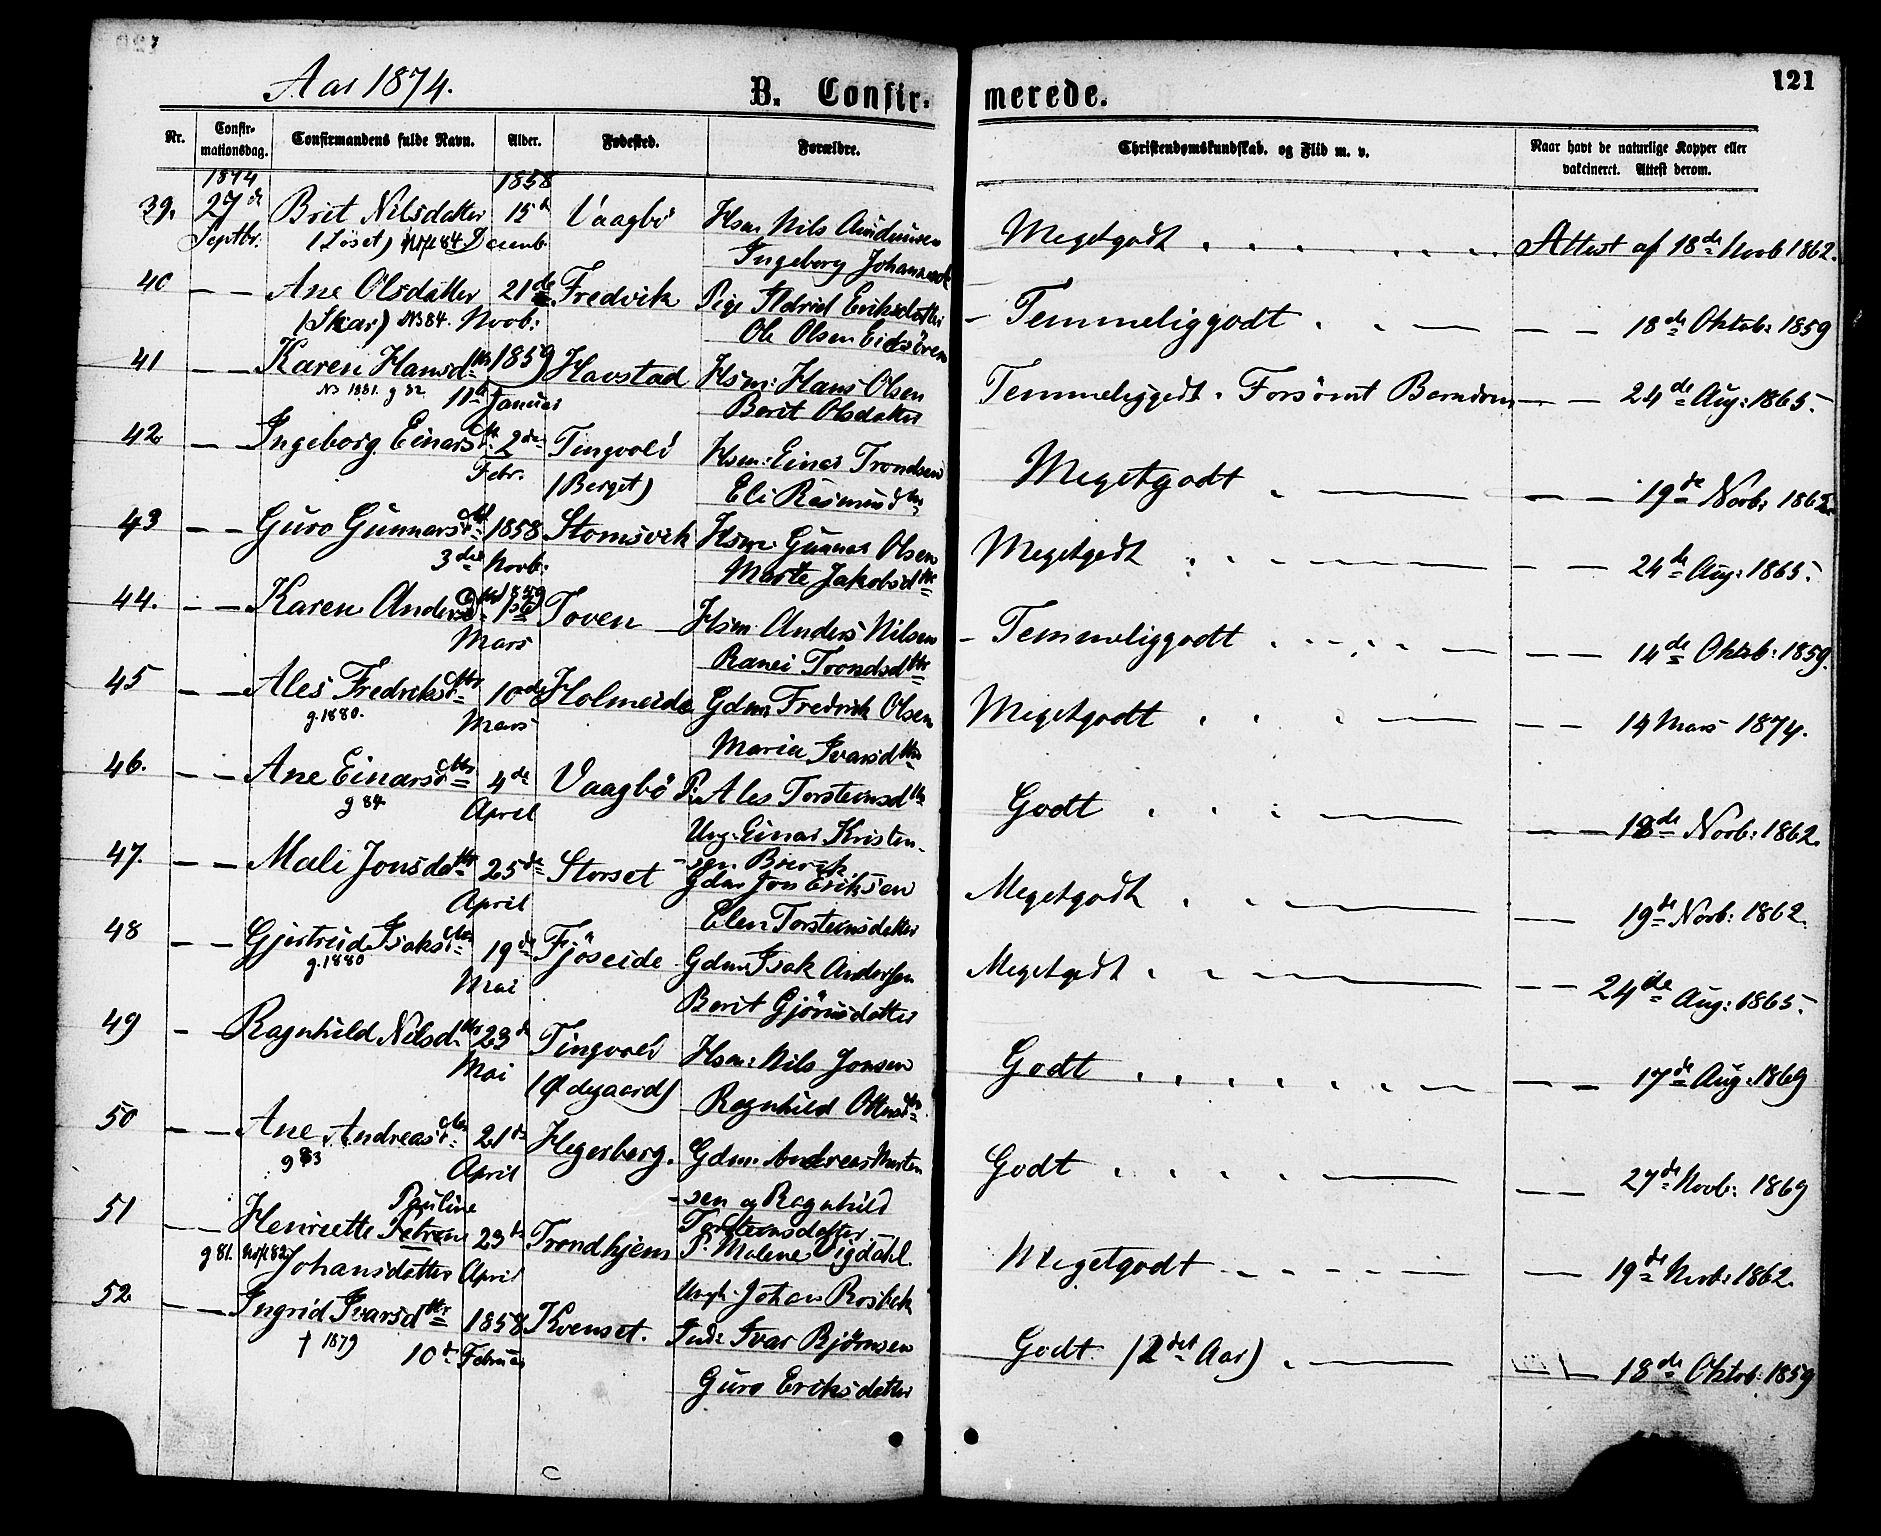 Aar 1874.
B. Confir-
merede.
121
Nr.
Confir-
mationsdag.
Confirmandens fulde Navn.
Alder.
Fødested.
Forældre.
Christendomskundskab, og Flid m. v.
Naar havt de naturlige Kopper eller
vakcineret. Attest derom.
1874
1858
39. 27de Brit Nilsdatter 15de Vaagbö Hsm. Nils Amundsen Megetgodt Attest af 18de Novb 1862.
Septbr. (Löset) 84 Decemb. Ingeborg
40 — — Ane Olsdatter 21de Fredvik Pige Eriksdatter Temmeliggodt — — 18de Oktob: 1859
(Skar) N384. Novb: Ole Olsen Eidsören
41 — — Karen Hansdtr 1859 Havstad Hsm: Hans Olsen Temmeliggodt. Forsömt Barndom — — 24de Aug: 1865.
N3 1881. g 82 11te Januar Berit Olsdatter
42 — Ingeborg Einarsdtr 2den Tingvold Hsm: Einar Trondsen Megetgodt — — 19de Novb: 1862
Febr. (Berget) Eli Rasmusdtr
43 — — Guro Gunnarsdtr 1858 Stomsvik Hsm: Gunnar Olsen Megetgodt — — 24de Aug: 1865.
3die Novb: Marte Jakobsdtr
44. — — Karen Andersdtr 1859 1ste Toven Hsm Anders Nilsen Temmeliggodt — — 14de Oktob: 1859.
Mars Ranei Trondsdtr
45 — — Ales Fredriksdtr 10de Holmeide Gdm: Fredrik Olsen Megetgodt — — 14 Mars 1874.
g. 1880. Mars Maria Ivarsdtr
46. — — Ane Einarsdtr 4de Vaagbö P: Ales Torsteinsdtr Godt — — Novb: 1862.
g 84 April Ung. Einar Kristen-
-sen
47. — — Mali Jonsdatr 25de Storset Gdm Jon Eriksen Megetgodt — 19de Novb: 1862
April Elen Torsteinsdatter
48 — — Gjertrud Isaksdtr 19de Fjöseide Gdm Isak Andersen Megetgodt — — 24de Aug: 1865.
g. 1880 Mai Berit Gjörusdatter
49 — — Ragnhild Nilsd. 23de Tingvold Hsm: Nils Jonsen Godt — — 17de Aug. 1869
Mai (Ødegaard) Ragnhild
50 — — Ane Andreasdtr 21de Hegerberg. Gdm. Andreas Morten Godt — — 27de Novb: 1869
g 83 April -sen og Ragnhild
Pauline Torsteinsdatter
51 — — Henriette Petren 23de Trondhjem P. Malene Sigdahl Megetgodt — 19de Novb: 1862
g 81. Johansdatter April Ungk. Johan Rosbek
52 — — Ingrid Ivarsdtr 1858 Kvenset. Ivar Bjørnsen Godt (2det Aar) — 18de Oktob: 1859
† 1879 10de Februar Guro Eriksdatter